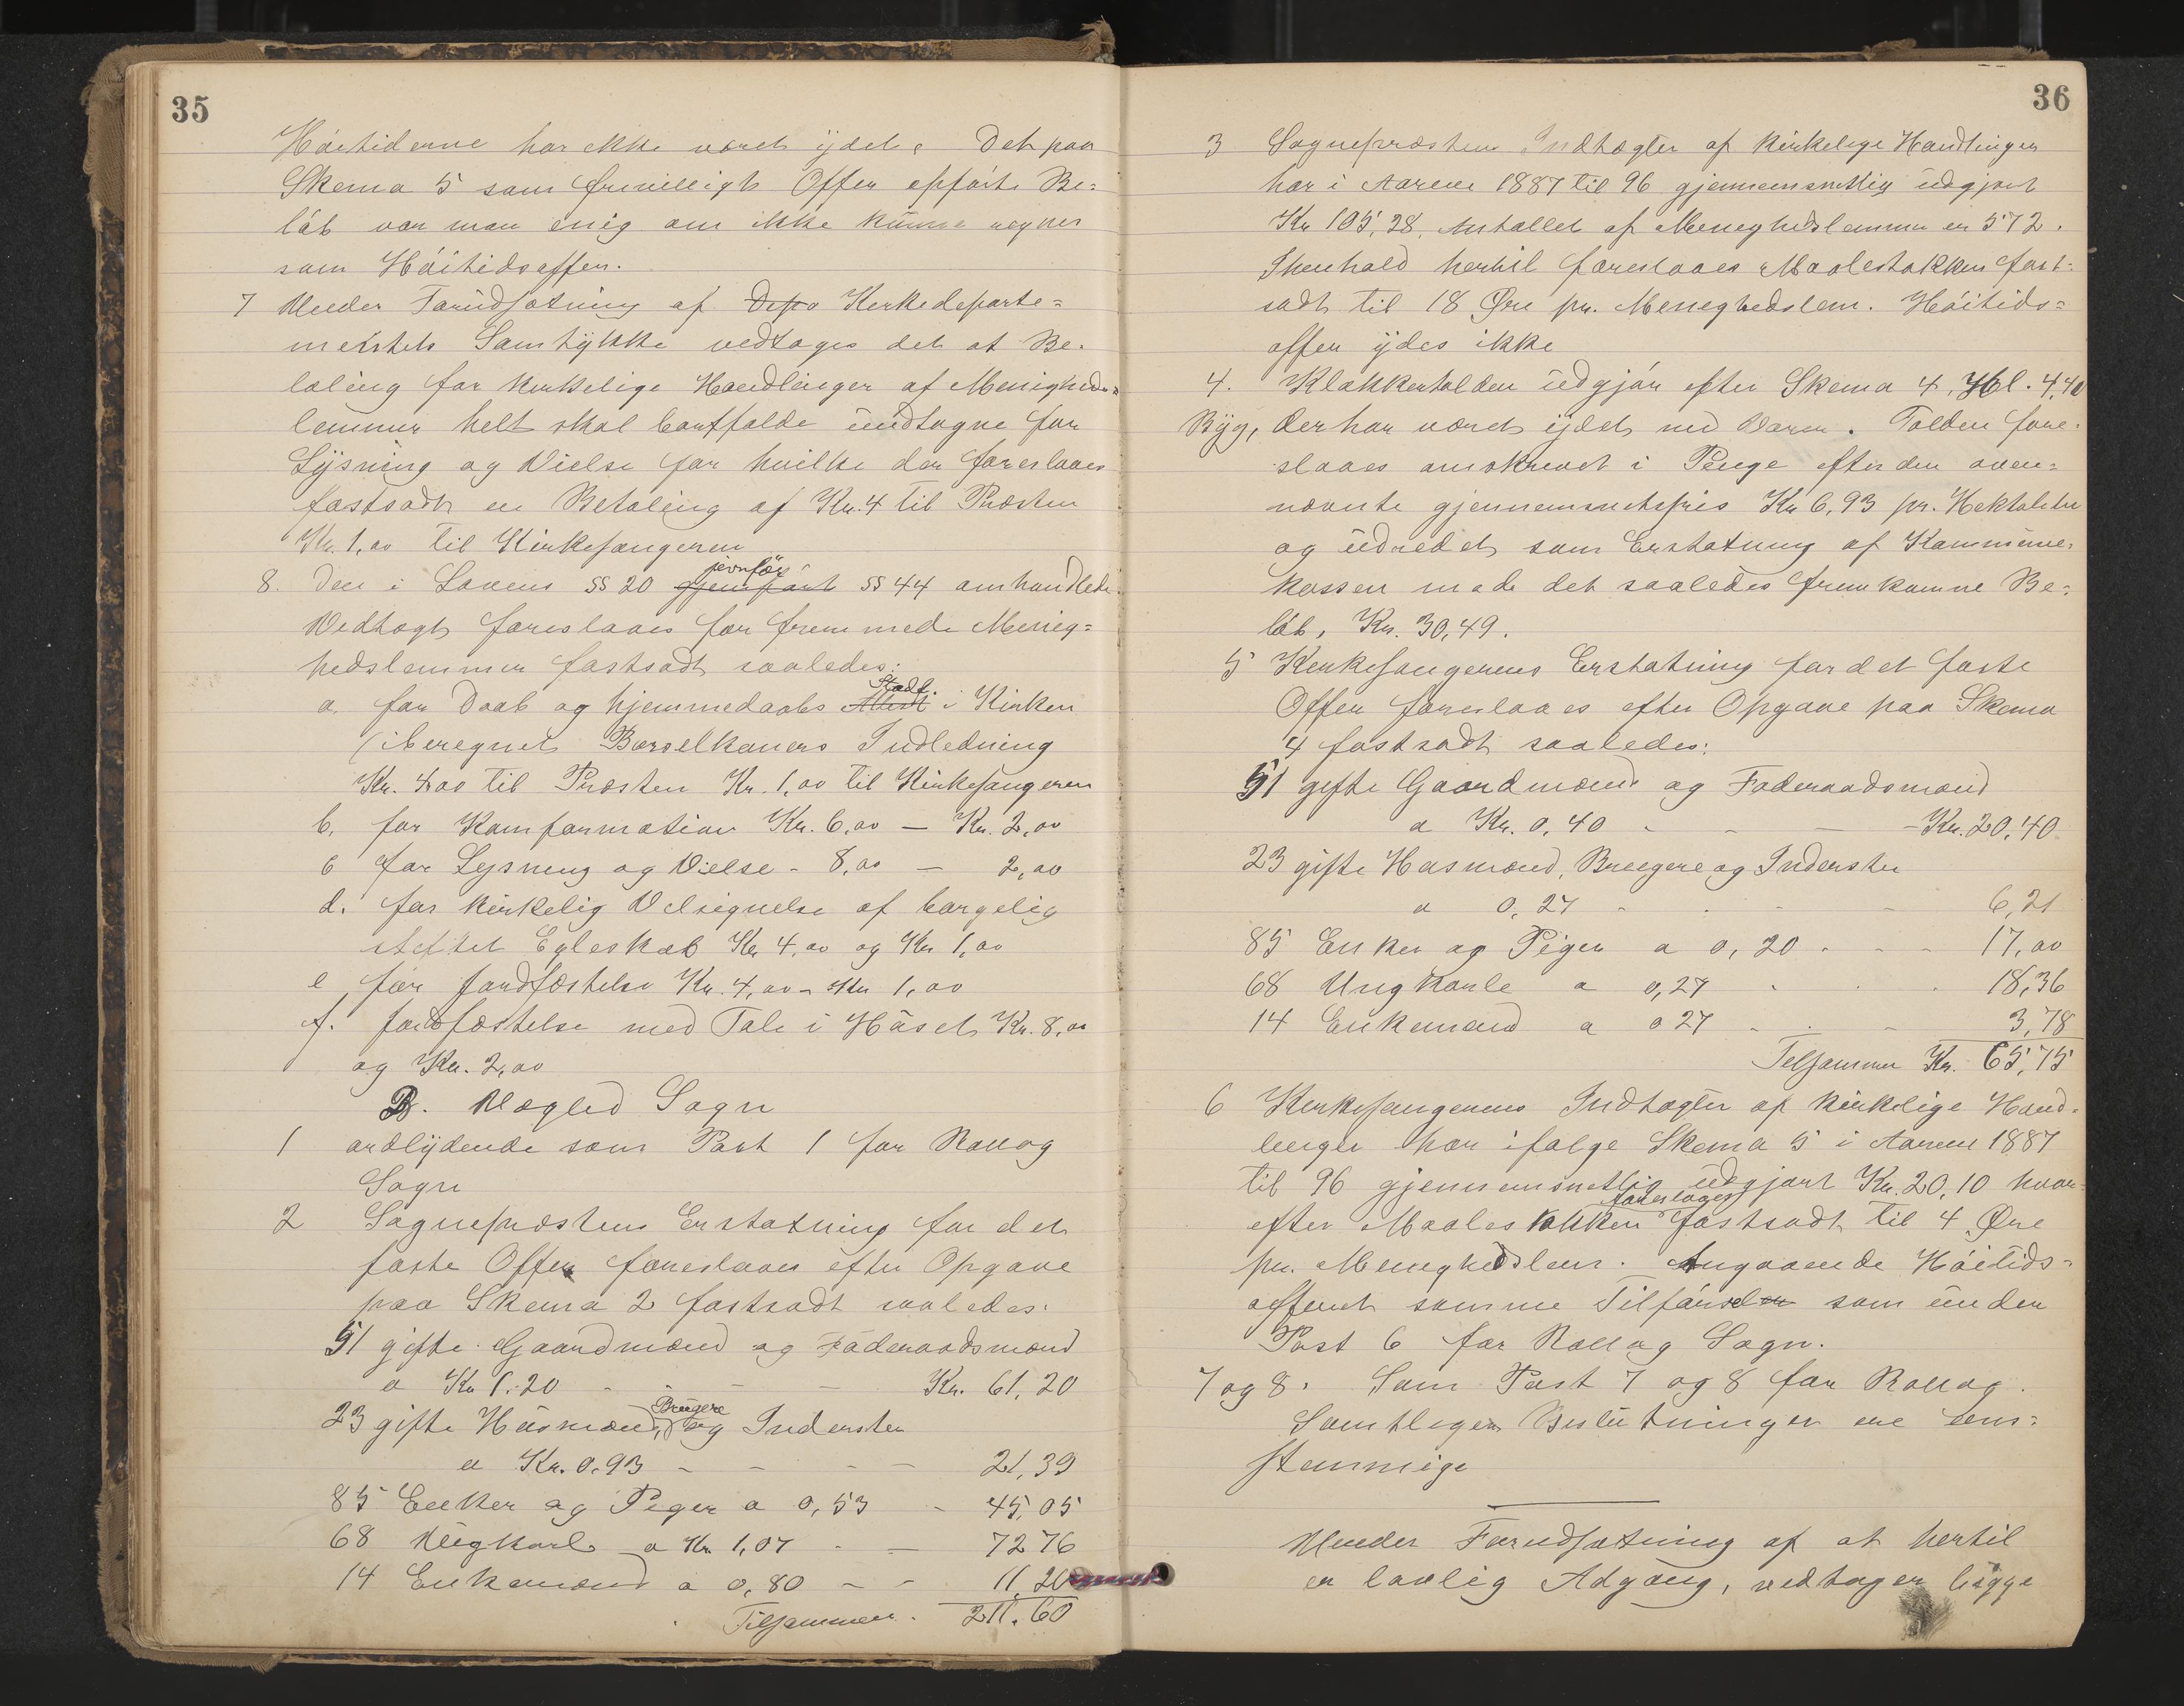 35
Höitiderne har ikke været ydet. Det paa
Skema 5 som frivilligt Offer opførte Be=
løb var man enig om ikke kunne regnes
som Höitidsoffer.
7 Under Forudsætning af Depa Kirkedeparte=
mentets Samtykke vedtages det at Be.
taling for kirkelige Handlinger af Menigheds=
lemmer helt skal bortfalde undtagne for
Lysning og Vielse for hvilke der foreslaaes
fastsadt en Betaling af Kr. 4 til Præsten
Kr. 1,00 til Kirkesangeren
jevnför
8. Den i Lovens §§ 20 gjemfört §§ 44 omhandlede
Vedtagt foreslaaes for fremmede Menig=
hedslemmer fastsadt saaledes:
Stadf.
a. for Daab og hjemmedaabs Attest i Kirken
(iberegnet Barselkoners Indledning
Kr. 4,00 til Præsten Kr. 1,00 til Kirkesangeren
b. for Konfirmation Kr. 6,00 — Kr. 2,00
c for Lysning og Vielse - 8,00 — 2,00
d. for kirkelig Velsignelse af borgelig
stiftet Egteskab Kr 4,00 og Kr 1,00
e for Jordfæstelse Kr. 4,00 - Kr 1,00
f. Jordfæstelse med Tale i Huset Kr. 8,00
og Kr. 2,00
B. Væglid Sogn
1 ordlydende som Post 1 for Rollag
Sogn
2 Sognepræstens Erstatning for det
faste Offer foreslaaes efter Opgave
paa Skema 2 fastsadt saaledes.
51 gifte Gaardmænd og Föderaadsmænd
a Kr 1.20 - - - - Kr. 61,20
Brugere
23 gifte Husmænd, og Inderster
a Kr. 0.93 - - - - 21,39
85 Enker og Piger a 0,53 - 45,05
68 Ungkarle a Kr. 1,07 - - 72 76
14 Enkemænd a 0,80 - - 11,20
Tilsammen. 211.60
36
3 Sognepræstens Indtægter af kirkelige Handlinger
har i Aarene 1887 til 96 gjennemsnitlig udgjort
Kr 105,28. Antallet af Menighedslemmer er 572.
I henhold hertil foreslaaes Maalestokken fast=
sadt til 18 Øre pr. Menighedslem. Höitids=
offer ydes ikke
4. Klokkertolden udgjör efter Skema 4, Hl. 4,40
Byg, der har været ydet med Varer. Tolden fore=
slaaes omskrevet i Penge efter den oven=
nævnte gjennemsnitspris Kr 6,93 pr. Hektoliter
og udredet som Erstatning af Kommune=
kassen med det saaledes fremkomne Be=
løb, Kr. 30,49.
5 Kirkesangerens Erstatning for det faste
Offer foreslaaes efter Opgave paa Skema
4 fastsadt saaledes:
51 gifte Gaardmænd og Föderaadsmænd
a Kr. 0,40 - - - Kr. 20,40
23 gifte Husmænd, Brugere og Inderster
a 0,27 - - - - 6,21
85 Enker og Piger a 0,20 - - - 17,00
68 Ungkarle a 0,27 - - - 18,36
14 Enkemænd a 0 27 - - - 3,78
Tilsammen Kr. 65,75
6 Kirkesangerens Indtægter af kirkelige Hand=
linger har ifølge Skema 5 i Aarene 1887
til 96 gjennemsnitlig udgjort Kr. 20,10 hvor=
foreslaaes
efter Maalestokken fastsadt til 4 Øre
pr. Menighedslem. Angaaende Höitids=
offeret samme Tilförsel som under
Post 6 for Rollag Sogn.
7 og 8. Som Post 7 og 8 for Rollag.
Samtlige Beslutninger ere Ens=
stemmige
Under Forudsætning af at hertil
er lovlig Adgang, vedtager begge